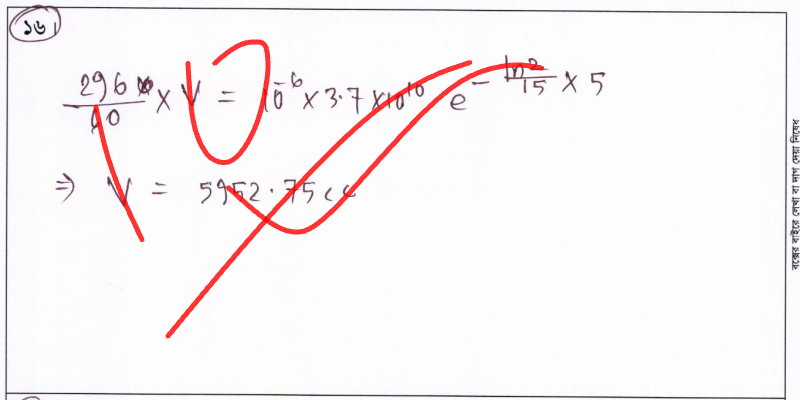 ১৬।
296/60 × V = 10^-6 × 3.7 × 10^10 e^(- ln2/15 × 5)
⇒ V = 5952.75 cc
বক্সের বাইরে লেখা বা দাগ দেয়া নিষেধ